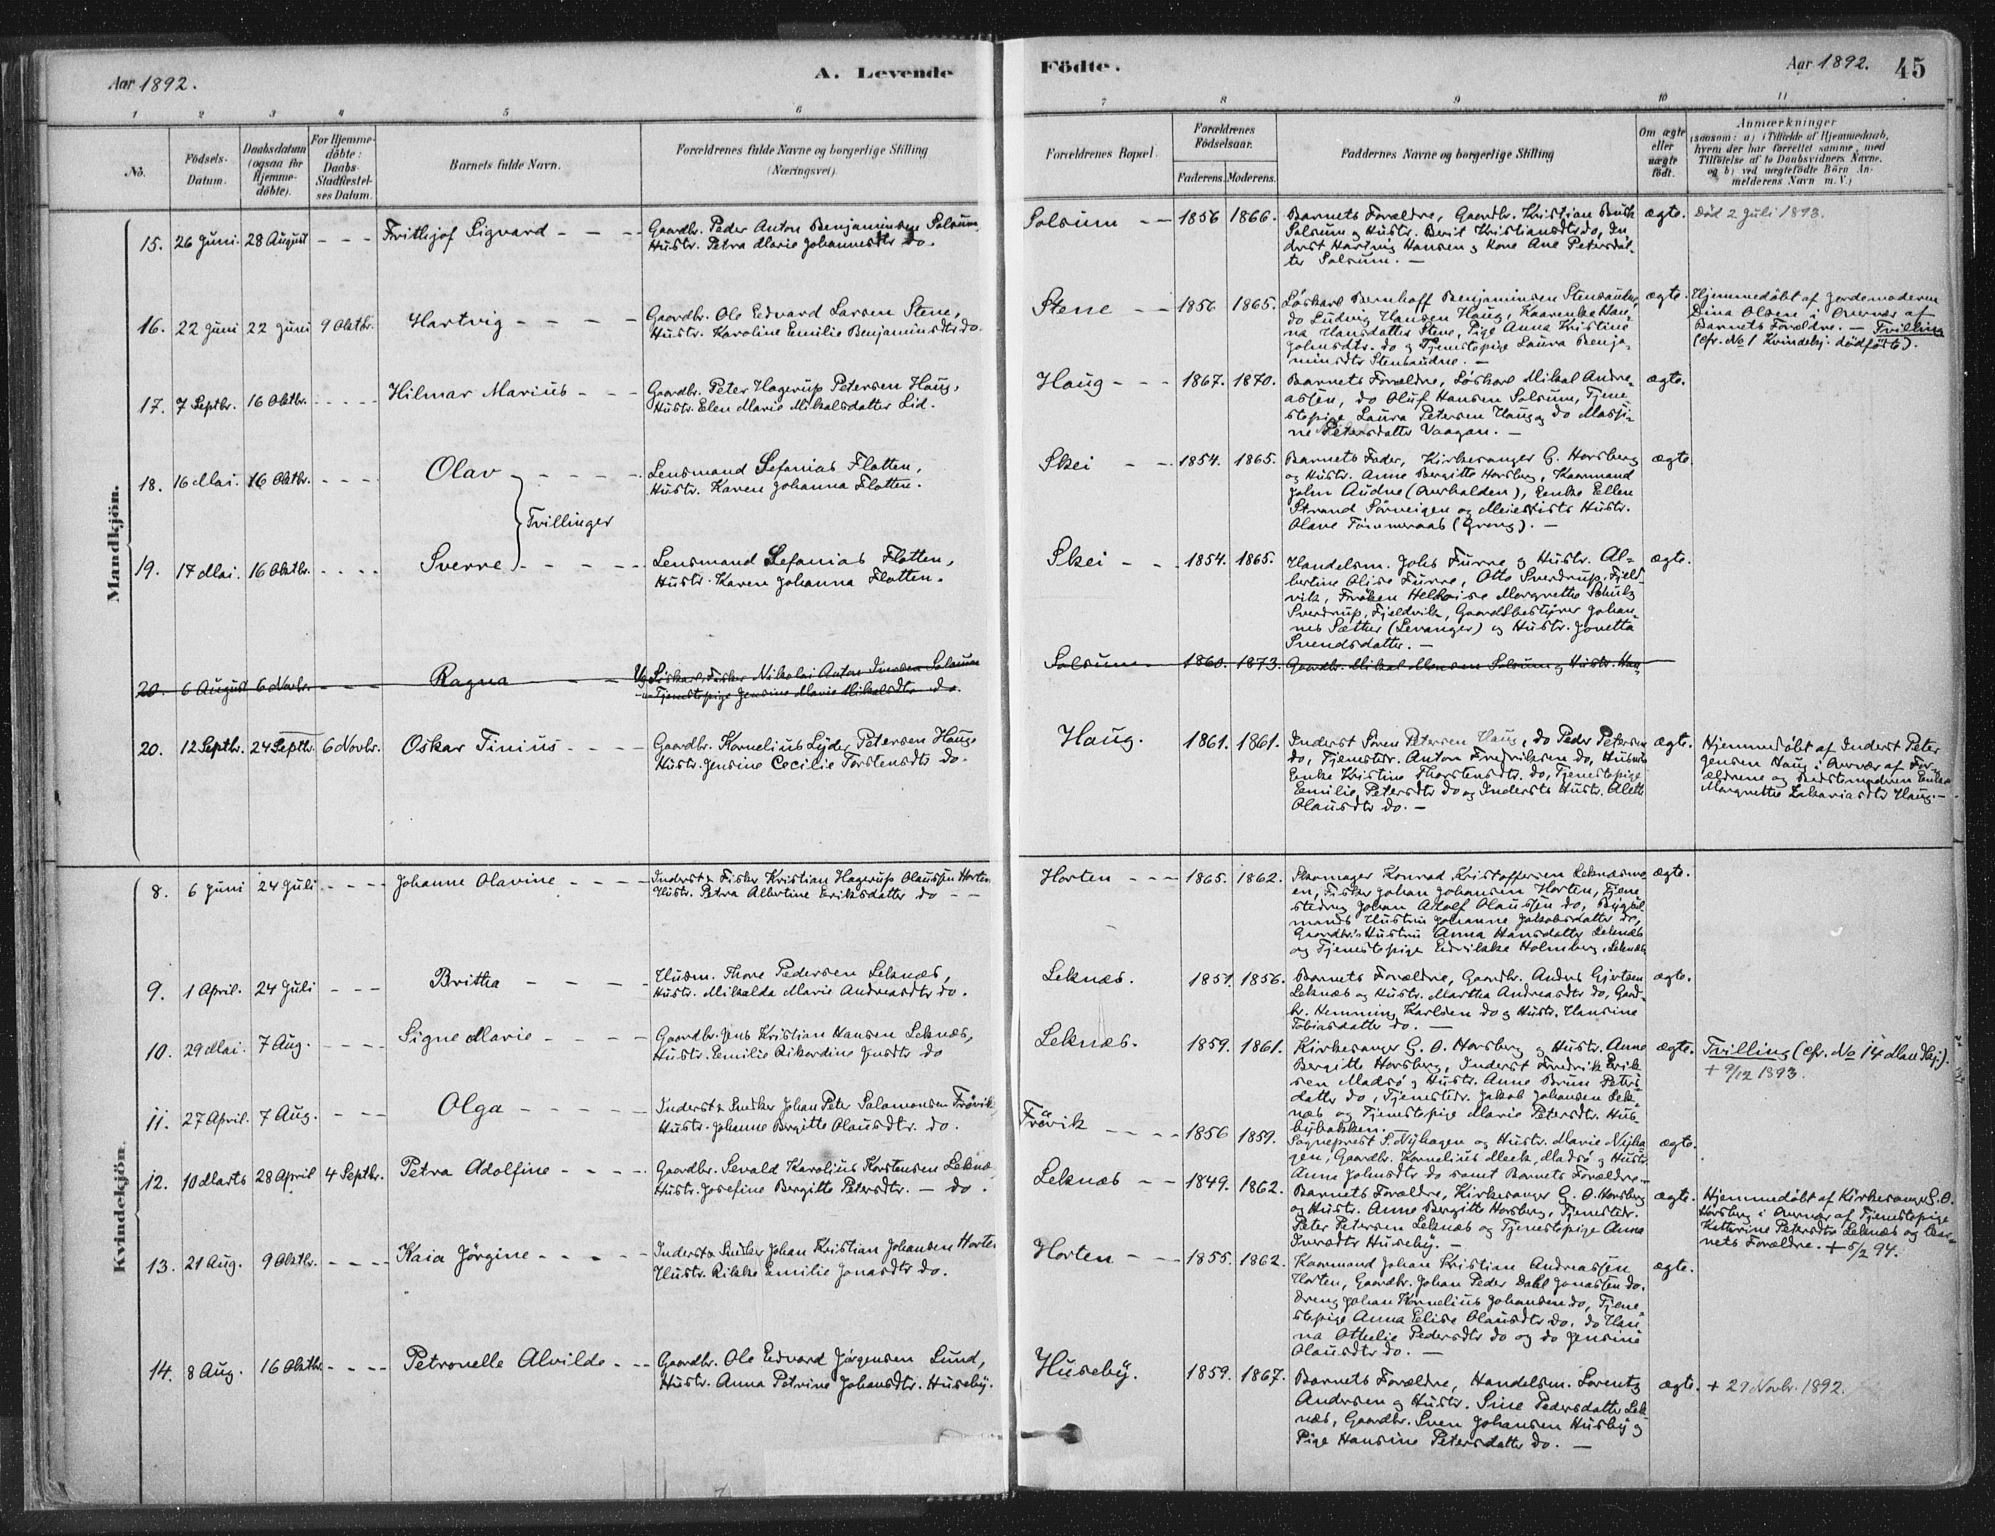 Aar 1892.
A. Levende
Födte.
Aar 1892.
45
1 2 3 4 5 6 7 8 9 10 11
No.
Födsels-
Datum.
Daabsdatum
(ogsaa for
Hjemme-
døbte).
For Hjemme-
døbte:
Daabs-
Stadfæstel-
ses Datum.
Barnets fulde Navn.
Forældrenes fulde Navne og borgerlige Stilling
(Næringsvei).
Forældrenes Bopæl.
Forældrenes
Födselsaar.
Faderens. Moderens.
Faddernes Navne og borgerlige Stilling
Om ægte
eller
uægte
født.
Anmærkninger
(saasom: a) i Tilfælde af Hjemmedaab,
hvem der har forrettet samme, med
Tilföielse af to Daabsvidners Navne,
og b) ved uægtefödte Börn An-
melderens Navn m. V.)
Mandkjön.
15. 26 Juni. 28 August - - - Frithjof Sigvard - - -
Gaardbr. Peder Anton Benjaminsen Solsum
Hustr. Petra Marie Johannesdtr do.
Solsum - - 1856 1866.
Barnets Forældre, Gaardbr. Kristian Buch
Solsum og Hustr. Berit Kristiansdtr do, In-
derst Hartvig Hansen og Kone Ane Petersdat-
ter Solsum. -
ægte. Død 2 Juli 1893.
16. 22 Juni 22 Juni 9 Oktbr. Hartvig - - - -
Gaardbr. Ole Edvard Larsen Stene,
Hustr. Karoline Emilie Benjaminsdtr do.
Stene - - 1856 1865.
Løskarl Bernhoff Benjaminsen Stensaunde,
do Ludvig Hansen Haug, Kaarenke Han-
na Hansdatter Stene, Pige Anna Kristine
Johnsdtr. do og Tjenestepige Laura Benja-
minsdtr Stensaudne. -
ægte. Hjemmedøbt af Jordemoderen
Dina Olsen i Overvær af
Barnets Forældre. - Tvilling
(cfr. No 1 Kvindekj. dødfødte).
17. 7 Septbr. 16 Oktbr. - - - - Hilmar Marius - - -
Gaardbr. Peter Hagerup Petersen Haug,
Hustr. Elen Marie Mikalsdatter Lid.
Haug - - - 1867. 1870.
Barnets Forældre, Løskarl Mikal Andre-
assen, do Oluf Hansen Solsum, Tjene-
stepige Laura Petersen Haug og do Massi-
ne Petersdatter Vaagan. -
ægte.
18. 16 Mai. 16 Oktbr. - - - - Olav - - - -
Lensmand Sefanias Flotten,
Hustr. Karen Johanna Flotten.
Skei - - 1854. 1865.
Barnets Fader, Kirkesanger G. Horsberg
og Hustr. Anne Bergitte Horsberg, Kaarmand
John Audne (Overhalden), Enke Ellen
Strand Sørveigen og Meierists Hustr.
Olave Tømmeraas (Grong). -
ægte.
Tvillinger
19. 17 Mai. 16 Oktbr. - - - - Sverre - - - -
Lensmand Sefanias Flotten,
Hustr. Karen Johanna Flotten.
Skei - - 1854. 1865.
Handelsm. Johs Furre og Hustr. Al-
bertine Olise Furre, Otto Sverdrup, Fjeld-
vik, Frøken Heloise Margrethe Schulz
Sverdrup, Fjeldvik, Gaardsbestyrer Johan-
nes Sæther (Levanger) og Hustr. Jonetta
Svendsdatter. -
ægte.
20. 6 August 6 Novbr. - - - Ragna - - -
Ug. Løskarl Fisker Nikolai Anton Iversen Solsum
og Tjenestepige Jensine Marie Mikalsdtr do.
Solsum 1860. 1873. Gaardbr. Mikal Monsen Solsum og Hustr. Han-
20. 12 Septbr. 24 Septbr. 6 Novbr. Oskar Tinius - - -
Gaardbr. Kornelius Lyder Petersen Haug,
Hustr. Jensine Cecilie Torstensdtr do.
Haug. 1861. 1861.
Inderst Søren Petersen Haug, do Peder Petersen
do, Tjenestedr. Anton Fredriksen do, Husm.
Enke Kristine Thorstensdtr. do, Tjenestepige
Emilie Petersdtr do og Indersts Hustr. Alette
Olausdtr do. -
ægte. Hjemmedøbt af Inderst Peter
Jensen Haug i Overvær af For-
ældrene og Bedstemoderen Enke
Margrethe Zakariasdtr Haug. -
Kvindekjön.
8. 6 Juni 24 Juli - - - - Johanne Olavine - - - -
Inderst & Fisker Kristian Hagerup Olaussen Horten
Hustr. Petra Albertine Eriksdatter do - -
Horten - - - 1865. 1862.
Skomager Konrad Kristoffersen Leknæsmo-
en, Fisker Johan Johansen Horten, Tjene-
stedreng Johan Adolf Olaussen do, Bygsel-
mands Hustru Johanne Jakobsdatter do,
Gaardbr's Hustru Anna Hansdatter Leknæs
og Tjenestepige Edvikke Holmberg, Leknæs
ægte.
9. 1 April. 24 Juli - - - Britha - - - -
Husm. Thore Pedersen Leknæs,
Hustr. Mikalda Marie Andreasdtr do.
Leknæs. 1851. 1856.
Barnets Forældre, Gaardbr. Anders Gjertsen
Leknæs og Hustr. Martha Andreasdtr do, Gaard-
br. Hemming Karlsen do og Hustr. Hansine
Tobiasdatter do. -
ægte.
10. 29 Mai. 7 Aug. - - - - Signe Marie - - - -
Gaardbr. Jens Kristian Hansen Leknæs,
Hustr. Emilie Rikardine Jensdtr do
Leknæs. 1859. 1861.
Kirkesanger G. O. Horsberg og Hustr. Anne
Bergitte Horsberg, Inderst Fredrik Erik-
sen Madsø og Hustr. Anne Brun Peters-
datter do, Tjenestedr. Jakob Johansen Lek-
næs og Tjenestepige Marie Petersdtr. Hus-
bybakken. -
ægte. Tvilling (cfr. No 14 Mandkj).
+ 9/12 1893.
11. 27 April. 7 Aug. - - - Olga - - - - -
Inderst & Snedker Johan Peter Salamonsen Frøvik
Hustr. Johanne Bergitte Olausdtr. do.
Frøvik - - - - 1856 1859.
Sogneprest S. Nyhagen og Hustr. Marie Nyha-
gen, Gaardbr. Kornelius Meek, Madsø og Hustr.
Anna Johnsdtr do samt Barnets Forældre. -
ægte.
12. 10 Marts 28 April 4 Septbr. Petra Adolfine - - - -
Gaardbr. Sevald Karolius Korstensen Leknæs
Hustr. Josefine Bergitte Petersdtr. - do.
Leknæs - - 1849. 1862.
Barnets Forældre, Kirkesanger G. O. Horsberg
og Hustr. Anne Bergitte Horsberg, Tjenestedr.
Peter Petersen Leknæs og Tjenestepige Anna
Iversdtr Huseby. -
ægte. Hjemmedøbt af Kirkesanger G. O.
Horsberg i Overvær af Tjenestepige
Kathrine Petersdtr Leknæs og Bar-
nets Forældre. + 5/2 94.
13. 21 Aug. 9 Oktbr. - - - - Kaia Jørgine - - - -
Inderst & Snedker Johan Kristian Johansen Horten
Hustr. Rikke Emilie Jonasdtr do.
Horten - - - 1855. 1862.
Kaarmand Johan Kristian Andreassen
Horten, Gaardbr. Johan Peder Dahl Jonassen do.
Dreng Johan Kornelius Johansen do, Tjene-
stepige Anna Elise Olausdtr do, do Han-
na Othelie Pedersdtr do og do Jensine
Olausdtr do. -
ægte.
14. 8 Aug. 16 Oktbr - - - - Petronelle Alvilde - - -
Gaardbr. Ole Edvard Jørgensen Lund,
Hustr. Anna Petrine Johansdtr. Huseby.
Huseby. 1859. 1867.
Barnets Forældre, Handelsm. Lorentz
Andersen og Hustr. Sine Pedersdatter Lek-
næs, Gaardbr. Sven Johansen Husby og
Pige Hansine Petersdatter do. -
ægte. + 29 Novbr. 1892.